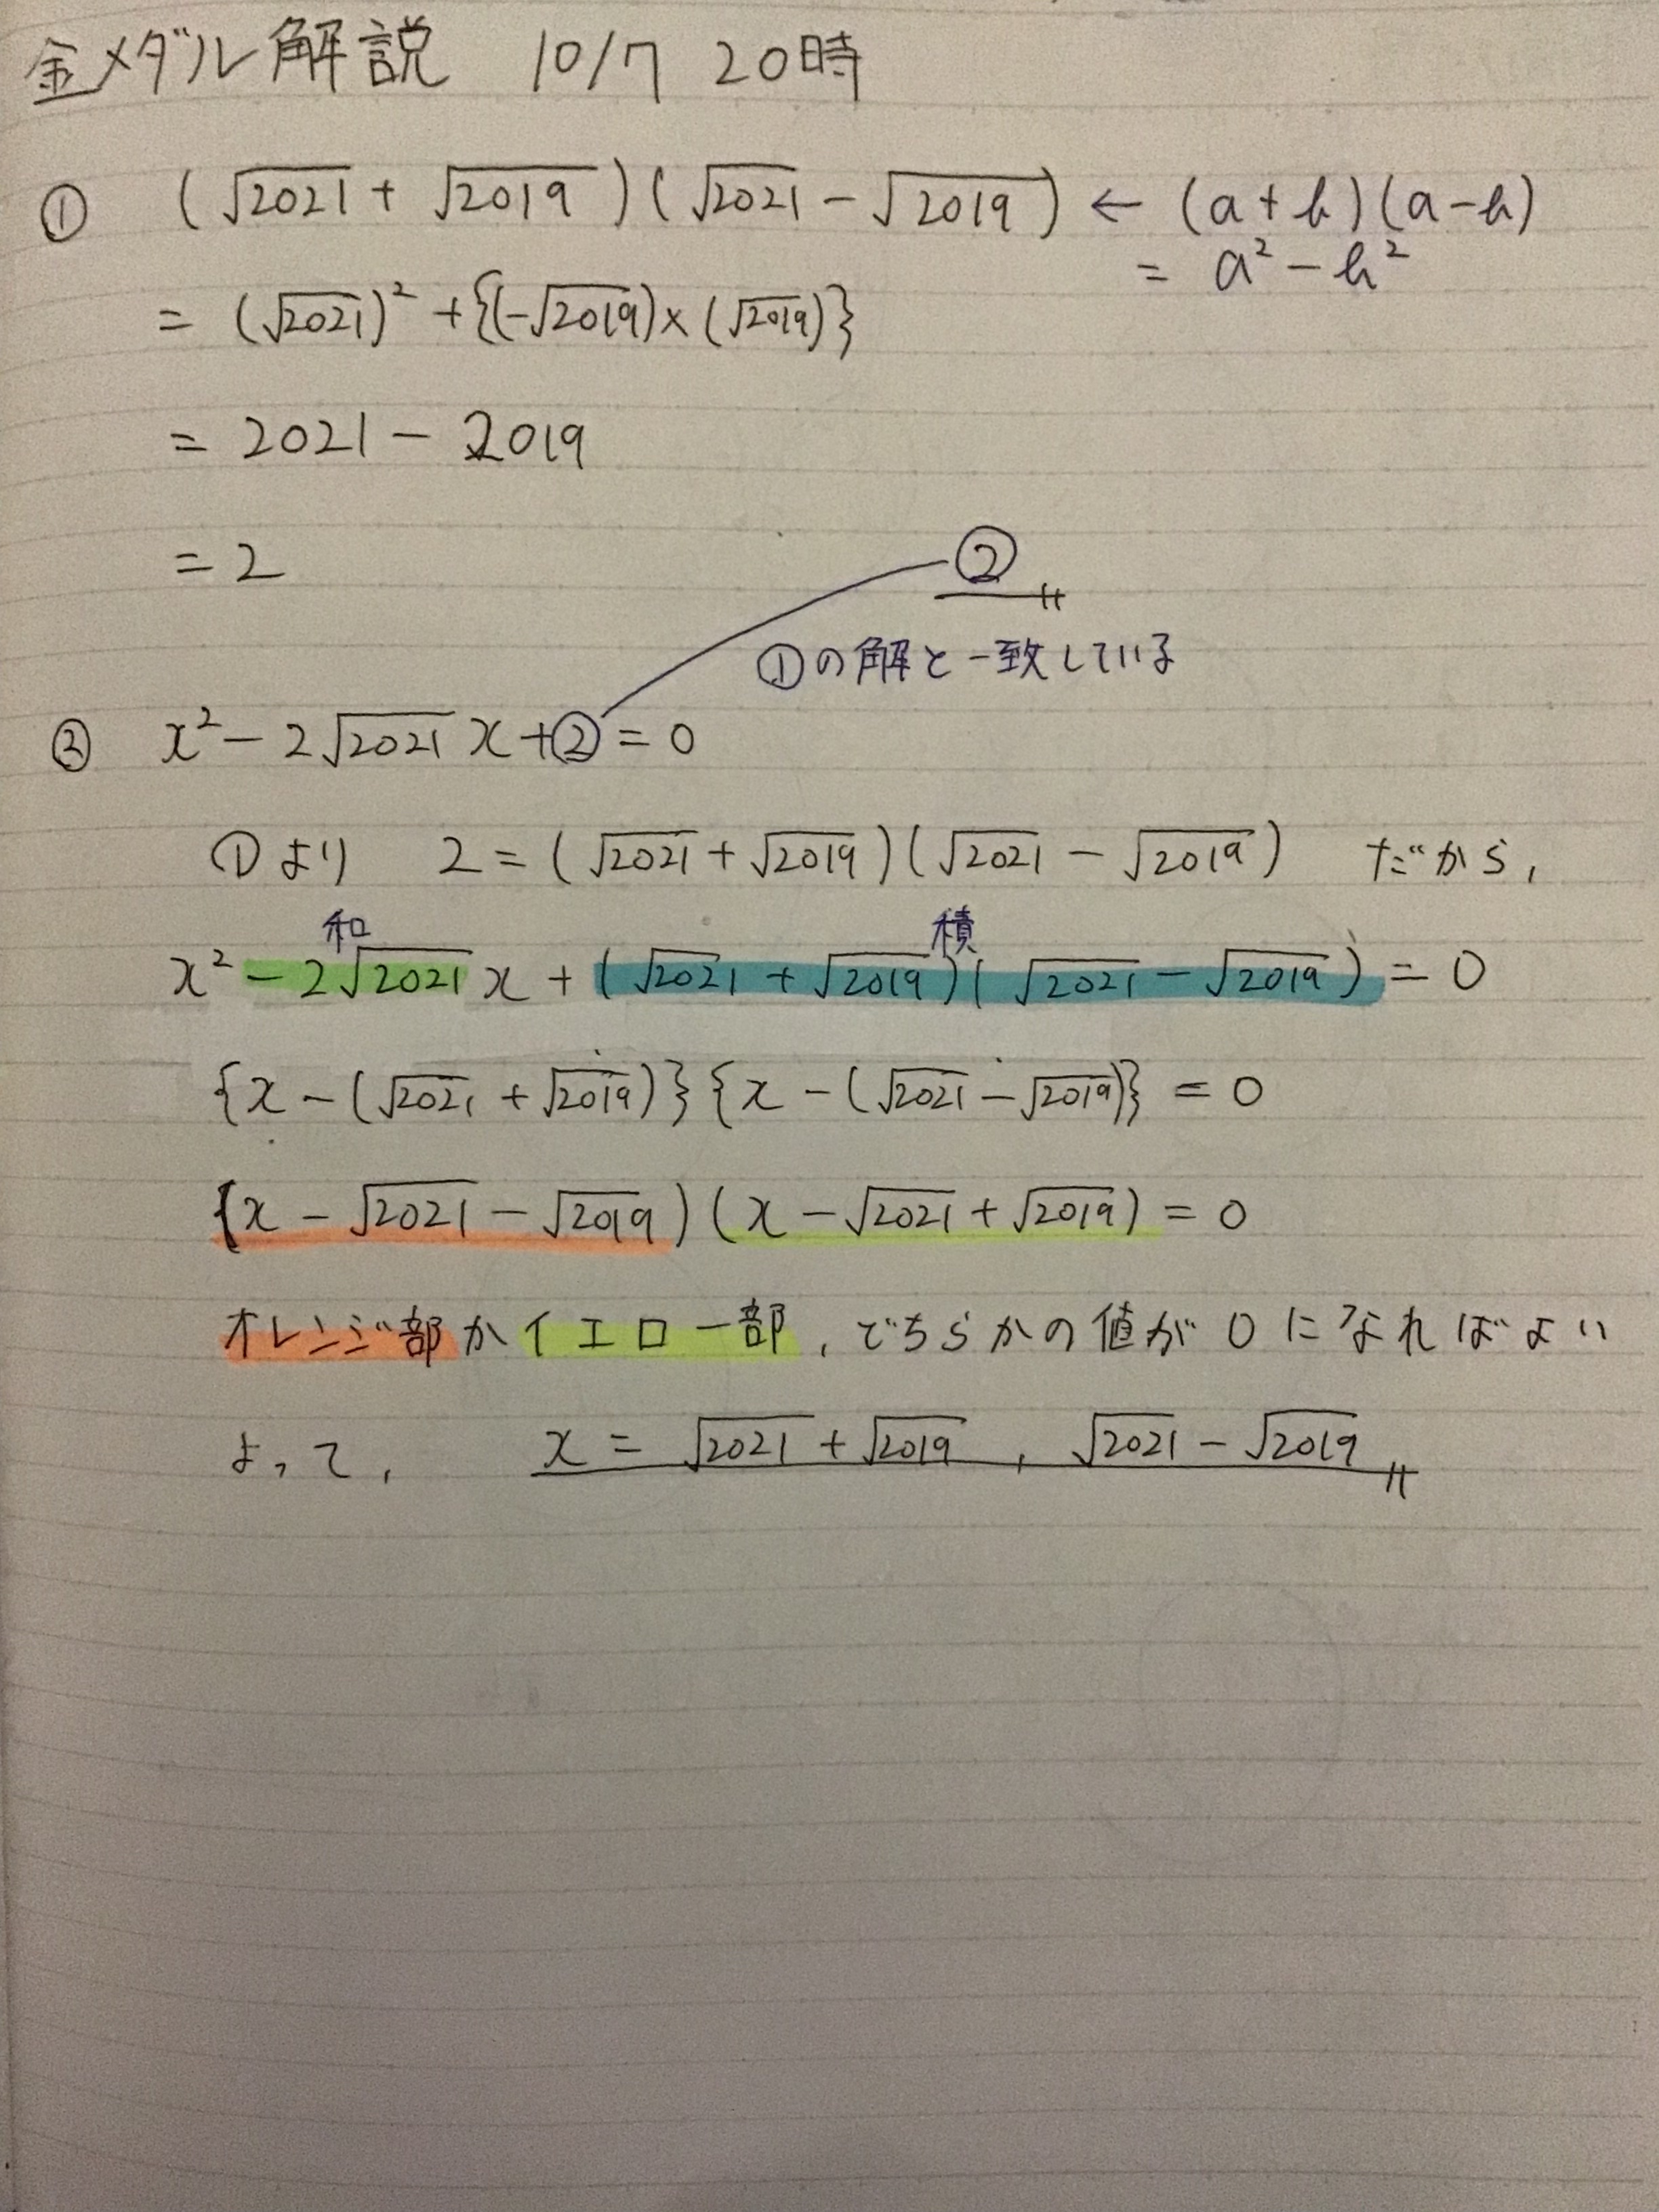 金メダル解説 10/7 20時
① (√2021 + √2019)(√2021 - √2019) ← (a+b)(a-b)
= a² - b²
= (√2021)² + {(-√2019)×(√2019)}
= 2021 - 2019
= 2 ②
①の解と一致している
② x² - 2√2021 x + ② = 0
①より 2 = (√2021 + √2019)(√2021 - √2019) だから,
和 積
x² - 2√2021 x + (√2021 + √2019)(√2021 - √2019) = 0
{x - (√2021 + √2019)}{x - (√2021 - √2019)} = 0
(x - √2021 - √2019)(x - √2021 + √2019) = 0
オレンジ部かイエロー部, どちらかの値が0になればよい
よって, x = √2021 + √2019 , √2021 - √2019